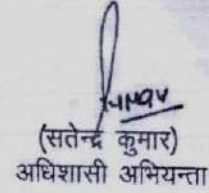 (सतेन्द्र कुमार)
अधिशासी अभियन्ता